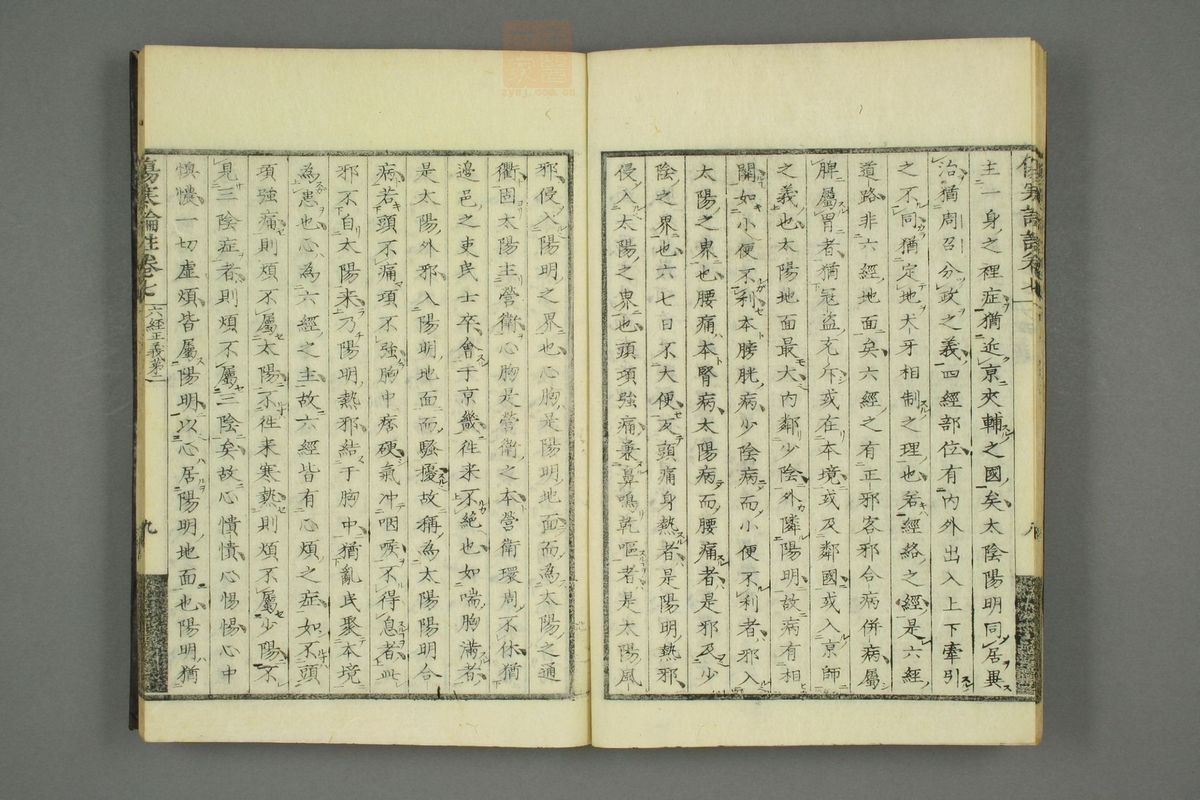 主一身之裡症猶近京夾輔之國矣太陰陽明同居異
治猶周召分政之義四經部位有內外出入上下牽引
之不同猶定地犬牙相制之理也若經絡之經是六經
道路非六經地面矣六經之有正邪客邪合病併病屬
脾屬胃者猶冦盜充斥或在本境或及鄰國或入京師
之義也太陽地面最大內鄰少陰外隣陽明故病有相
關如小便不利本膀胱病少陰病而小便不利者邪入
太陽之界也腰痛本腎病太陽病而腰痛者是邪及少
陰之界也六七日不大便及頭痛身熱者是陽明熱邪
侵入太陽之界也頭項強痛兼鼻鳴乾嘔者是太陽風
邪侵入陽明之界也心胸是陽明地面而為太陽之通
衢因太陽主營衛心胸是營衛之本營衛環周不休猶
邊邑之吏民士卒會于京畿徃来不絕也如喘胸滿者
是太陽外邪入陽明地面而騷擾故稱為太陽陽明合
病若頭不痛項不強胸中痞硬氣冲咽喉不得息者此
邪不自太陽来乃陽明熱邪結于胸中猶亂民聚本境
為患也心為六經之主故六經皆有心煩之症如不頭
項強痛則煩不屬太陽不徃来寒熱則煩不屬少陽不
見三陰症者則煩不屬三陰矣故心憒憒心惕惕心中
懊憹一切虛煩皆屬陽明以心居陽明地面也陽明猶
傷寒論註卷七
六經正義第二
九